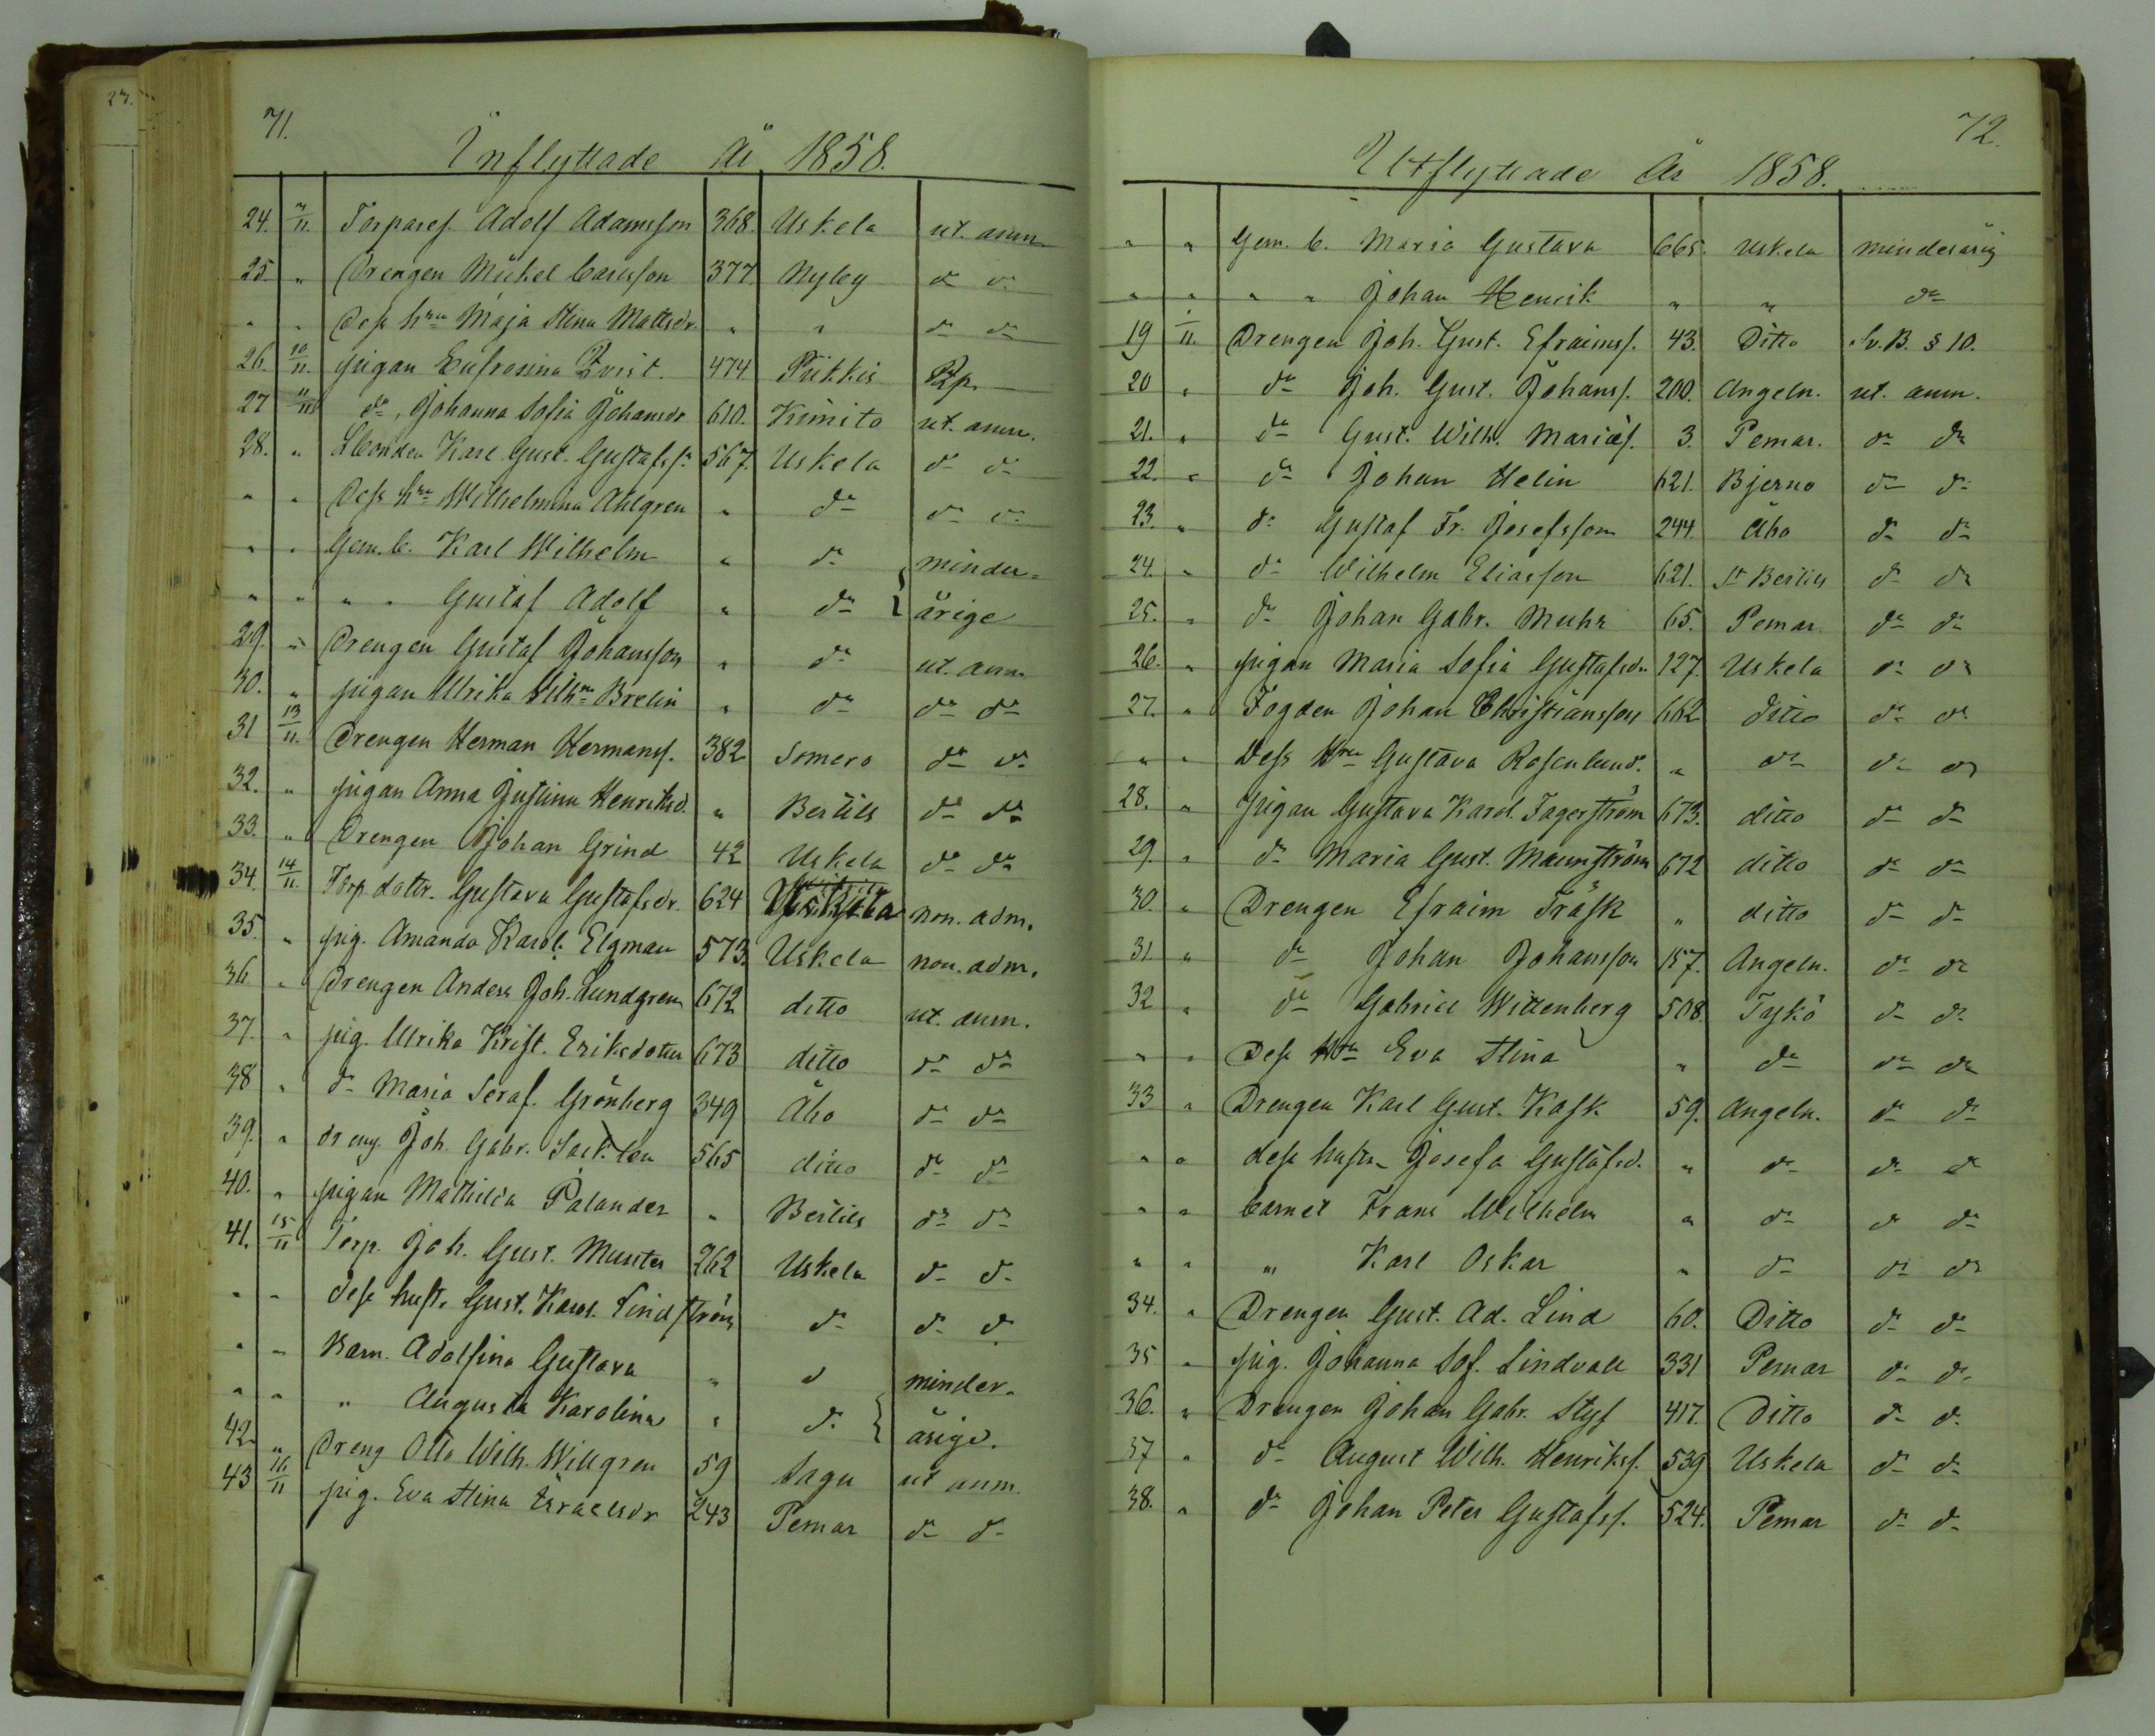 23.
71.
Inflyttade År 1858.
24. 4/11. Torparef. Adolf Adamsson 368. Uskela ut. anm.
25. " Drengen Michel Carlsson 377. Nyby do do
" " Dess hru Maja Stina Mattsdr. " " do do
26. 10/11. pigan Eufrosina Qvist. 474 Pikkis Pp.
27 11/11 do, Johanna Sofia Johansdr 610. Kimito ut. anm.
28. " Karl Gust. Gustafss. 567. Uskela do do
" " Dess hru Wilhelmina Ahlgren " do do do
" " Gem. b. Karl Wilhelm " do minder-
" " " " Gustaf Adolf " do } årige
29. " Drengen Gustaf Johansson " do ut. anm
30. " pigan Ulrika Vilhna Brelin " do do do
31 13/11. Drengen Herman Hermanss. 382 Somero do do
32. " pigan Anna Justina Henriksd. " Bertils do do
33. " Drengen Johan Grind 42 Uskela do do
34. 14/11. Torp. dottr. Gustava Gustafsdr. 624 Uskela non. adm.
35. " pig. Amanda Karol. Elgman 573. Uskela non. adm.
36. " Drengen Anders Joh. Lundgren 672 ditto ut. anm.
37. " pig. Ulrika Krist. Eriksdotter 673 ditto do do
38 " do Maria Seraf. Grönberg 349 Åbo do do
39. " dreng. Joh. Gabr. 565 ditto do do
40. " pigan Mathilda Palander " Bertils do do
41. 15/11 Torp. Joh. Gust. Munter 262 Uskela do do
" " dess hust. Gust. Karol. Lindström do do do
" " Barn. Adolfina Gustava " d minder-
" " " Augusta Karolina " do } årige.
42. " Dreng Otto Wilh. Willgren 59 Sagu ut anm.
43 16/11 pig. Eva Stina Israelsdr 243 Pemar do do
72.
Utflyttade År 1858.
" " Gem. b. Maria Gustava 665. Uskela minderårig
" " " " Johan Henrik " " do
19 1/11. Drengen Joh. Gust. Efraimss. 43. Ditto Sv. B. § 10.
20 " do Joh. Gust. Johanss. 200. Angeln. ut. anm.
21. " do Gust. Wilh. Mariæs. 3. Pemar. do do
22. " do Johan Helin 621. Bjerno do do
23. " do Gustaf Fr. Josefsson 244. Åbo do do
24. " do Wilhelm Eliasson 621. St Bertils do do
25. " do Johan Gabr. Muhr 65. Pemar do do
26. " pigan Maria Sofia Gustafsdr 127. Uskela do do
27. " Fogden Johan Christiansson 662 ditto do do
" " Dess Hru Gustava Rosenlund. " do do do
28. " pigan Gustava Karol. Fagerström 673. ditto do do
29. " do Maria Gust. Maunström 672 ditto do do
30. " Drengen Efraim Träsk " ditto do do
31 " do Johan Johansson 157. Angeln. do do
32 " do Gabriel Wittenberg 508. Tykö do do
" " Dess Hru Eva Stina " do do do
33 " Drengen Karl Gust. Kask 59. Angeln. do do
" " dess hustr. Josefa Gustafsd. " do do do
" " barnet Frans Wilhelm " do do do
" " " Karl Oskar " do do do
34. " Drengen Gust. Ad. Lind 60. Ditto do do
35 " pig. Johanna Sof. Lindvall 331 Pemar do do
36. " Drengen Johan Gabr. Styf 417. Ditto do do
37 " do August Wilh. Henrikss. 539 Uskela do do
38. " do Johan Peter Gustafss. 524. Pemar do do